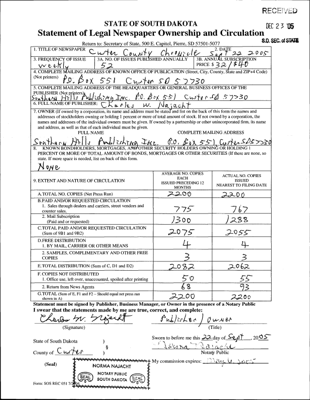 RECEIVED
DEC 23 '05
S.D. SEC. OF STATE
STATE OF SOUTH DAKOTA
Statement of Legal Newspaper Ownership and Circulation
Return to: Secretary of State, 500 E. Capitol, Pierre, SD 57501-5077
1. TITLE OF NEWSPAPER Custer County Chronicle 2. DATE Sept 22 2005
3. FREQUENCY OF ISSUE weekly 3A. NO. OF ISSUES PUBLISHED ANNUALLY 52 3B. ANNUAL SUBSCRIPTION PRICE $ 32/$40
4. COMPLETE MAILING ADDRESS OF KNOWN OFFICE OF PUBLICATION (Street, City, County, State and ZIP+4 Code)
(Not printers) P.O. Box 551 Custer SD 57730
5. COMPLETE MAILING ADDRESS OF THE HEADQUARTERS OR GENERAL BUSINESS OFFICES OF THE
PUBLISHER (Not printers)
Southern Hills Publishing Inc. PO Box 551 Custer SD 57730
6. FULL NAME OF PUBLISHER: Charles W. Najacht
7. OWNER (If owned by a corporation, its name and address must be stated and also on the back of this form the names and
addresses of stockholders owning or holding 1 percent or more of total amount of stock. If not owned by a corporation, the
names and addresses of the individual owners must be given. If owned by a partnership or other unincorporated firm, its name
and address, as well as that of each individual must be given.
FULL NAME COMPLETE MAILING ADDRESS
Southern Hills Publishing Inc. P.O. Box 551, Custer SD 57730
8. KNOWN BONDHOLDERS, MORTGAGEES, AND OTHER SECURITY HOLDERS OWNING OR HOLDING 1
PERCENT OR MORE OF TOTAL AMOUNT OF BONDS, MORTGAGES OR OTHER SECURITIES (If there are none, so
state. If more space is needed, list on back of this form).
None
9. EXTENT AND NATURE OF CIRCULATION
AVERAGE NO. COPIES EACH ISSUED PRECEDING 12 MONTHS
ACTUAL NO. COPIES ISSUED NEAREST TO FILING DATE
A. TOTAL NO. COPIES (Net Press Run) 2200 2200
B. PAID AND/OR REQUESTED CIRCULATION
1. Sales through dealers and carriers, street vendors and
counter sales. 775 767
2. Mail Subscription
(Paid and/or requested) 1300 1288
C. TOTAL PAID AND/OR REQUESTED CIRCULATION
(Sum of 9B1 and 9B2) 2075 2055
D. FREE DISTRIBUTION
1. BY MAIL, CARRIER OR OTHER MEANS 4 4
2. SAMPLES, COMPLIMENTARY AND OTHER FREE
COPIES 3 3
E. TOTAL DISTRIBUTION (Sum of C, D1 and D2) 2082 2062
F. COPIES NOT DISTRIBUTED
1. Office use, left over, unaccounted, spoiled after printing 50 55
2. Return from News Agents 68 93
G. TOTAL (Sum of E, F1 and F2 - Should equal net press run
shown in A) 2200 2200
Statement must be signed by Publisher, Business Manager, or Owner in the presence of a Notary Public
I swear that the statements made by me are true, correct, and complete:
Charles W. Najacht Publisher / owner
(Signature) (Title)
State of South Dakota ) Sworn to before me this 22 day of Sept 2005
County of Custer ) Norma Najacht
Notary Public
(Seal) My commission expires:
NORMA NAJACHT
NOTARY PUBLIC
SOUTH DAKOTA
SEAL
SEAL